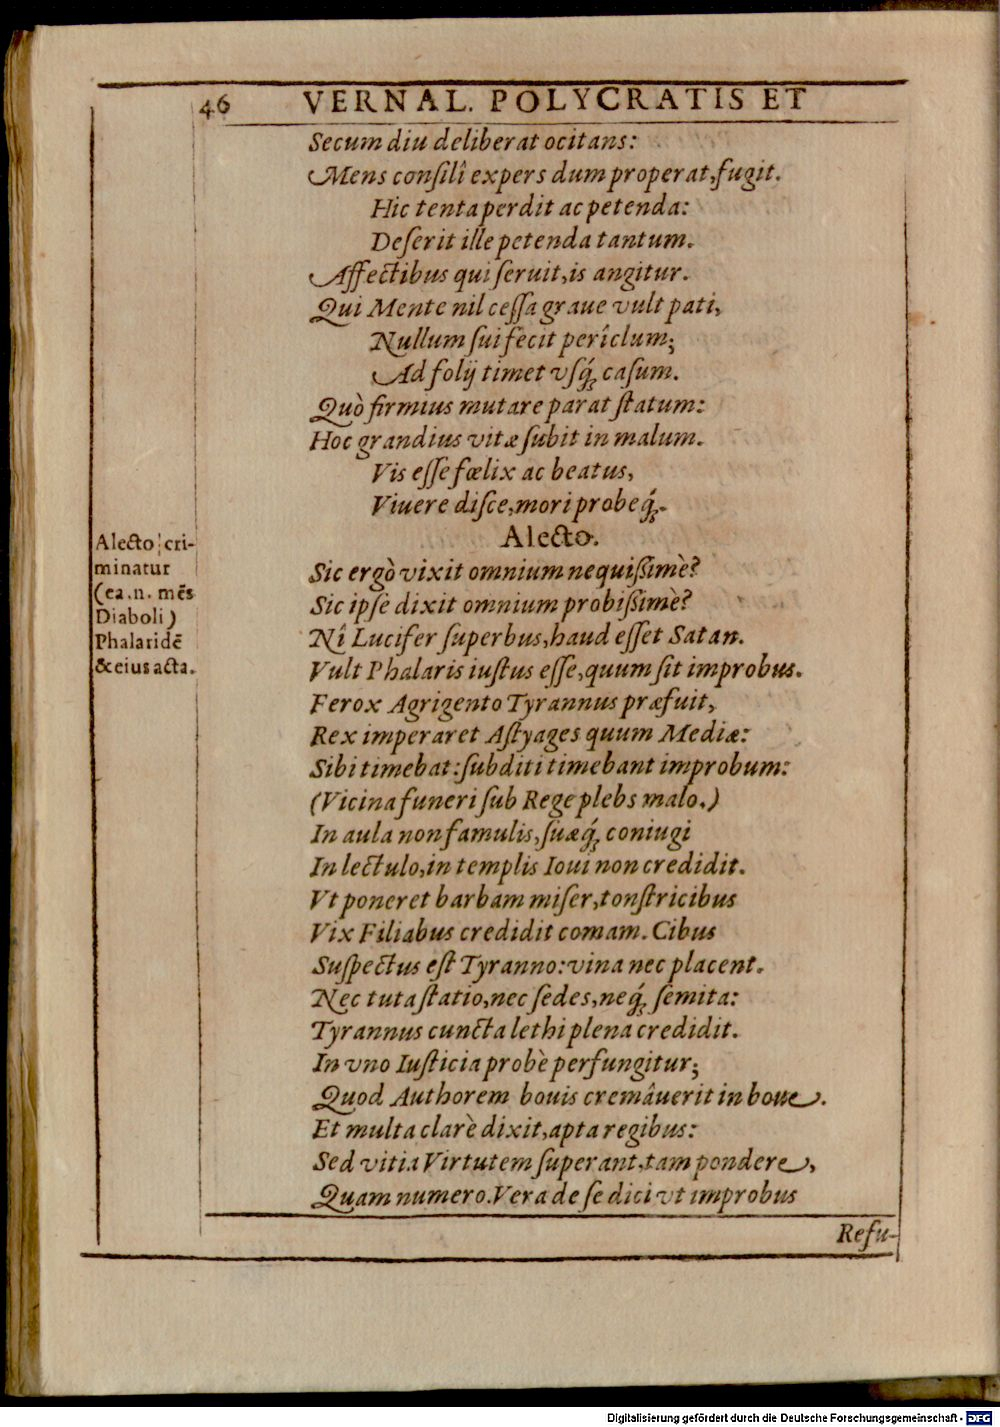 46 VERNAL. POLYCRATIS ET
Secum diu deliberat ocitans:
Mens consilî expers dum properat, fugit.
Hic tenta perdit ac petenda:
Deserit ille petenda tantum.
Affectibus qui seruit, is angitur.
Qui Mente nil cessa graue vult pati,
Nullum sui fecit perîclum;
Ad folij timet vsq́; casum.
Quò firmius mutare parat statum:
Hoc grandius vitæ subit in malum.
Vis esse fœlix ac beatus,
Viuere disce, mori probeq́;.
Alecto.
Alecto cri-
minatur
(ea.n. mẽs
Diaboli)
Phalaridẽ
& eius acta.
Sic ergò vixit omnium nequißimè?
Sic ipse dixit omnium probißimè?
Nî Lucifer superbus, haud esset Satan.
Vult Phalaris iustus esse, quum sit improbus.
Ferox Agrigento Tyrannus præfuit,
Rex imperaret Astyages quum Mediæ:
Sibi timebat: subditi timebant improbum:
(Vicina funeri sub Rege plebs malo.)
In aula non famulis, suæq́; coniugi
In lectulo, in templis Ioui non credidit.
Vt poneret barbam miser, tonstricibus
Vix Filiabus credidit comam. Cibus
Suspectus est Tyranno: vina nec placent.
Nec tuta statio, nec sedes, neq́; semita:
Tyrannus cuncta lethi plena credidit.
In vno Iusticia probè perfungitur;
Quod Authorem bouis cremâuerit in boue.
Et multa clarè dixit, apta regibus:
Sed vitia Virtutem superant, tam pondere,
Quam numero. Vera de se dici vt improbus
Refu-
Digitalisierung gefördert durch die Deutsche Forschungsgemeinschaft - DFG